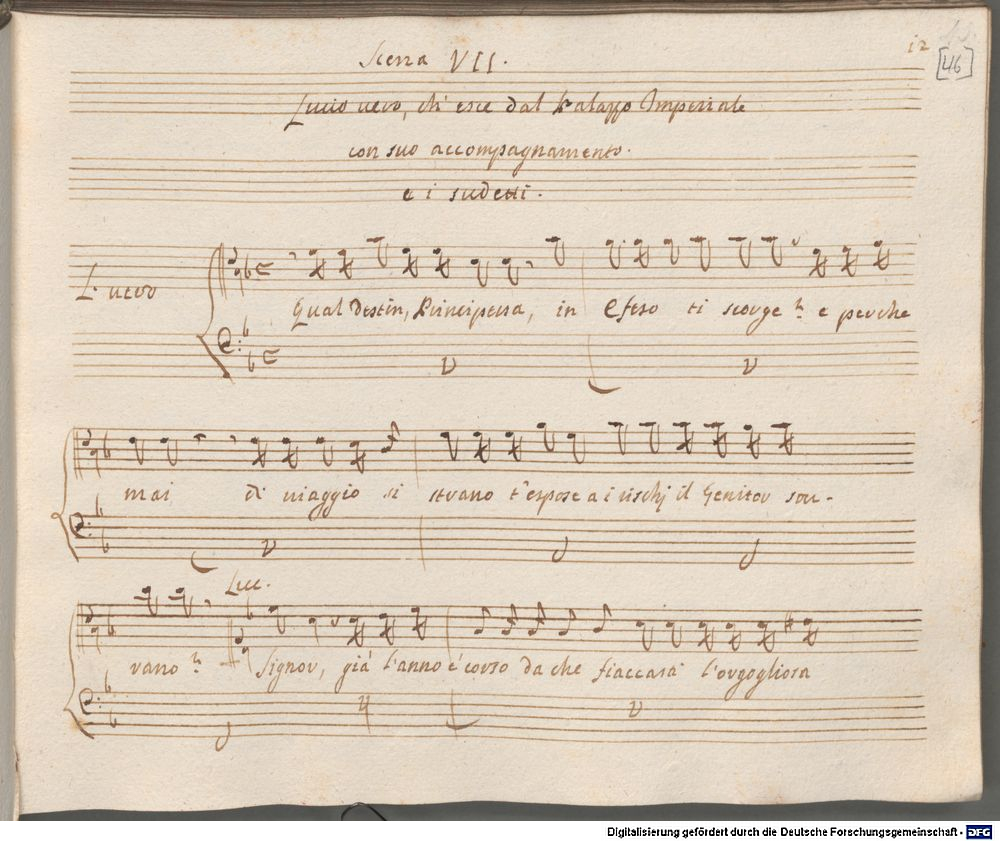 12
[46]
Scena VII.
Lucio vero, ch'esce dal Palazzo Imperiale
con suo accompagnamento.
e i sudetti.
L. vero
Qual destin, Principessa, in Efeso ti scorge? e perche
mai di uiaggio si strano t'espose a i rischj il Genitor sou-
Luc.
rano? Signor, già l'anno è corso da che fiaccata l'orgogliosa
Digitalisierung gefördert durch die Deutsche Forschungsgemeinschaft - DFG